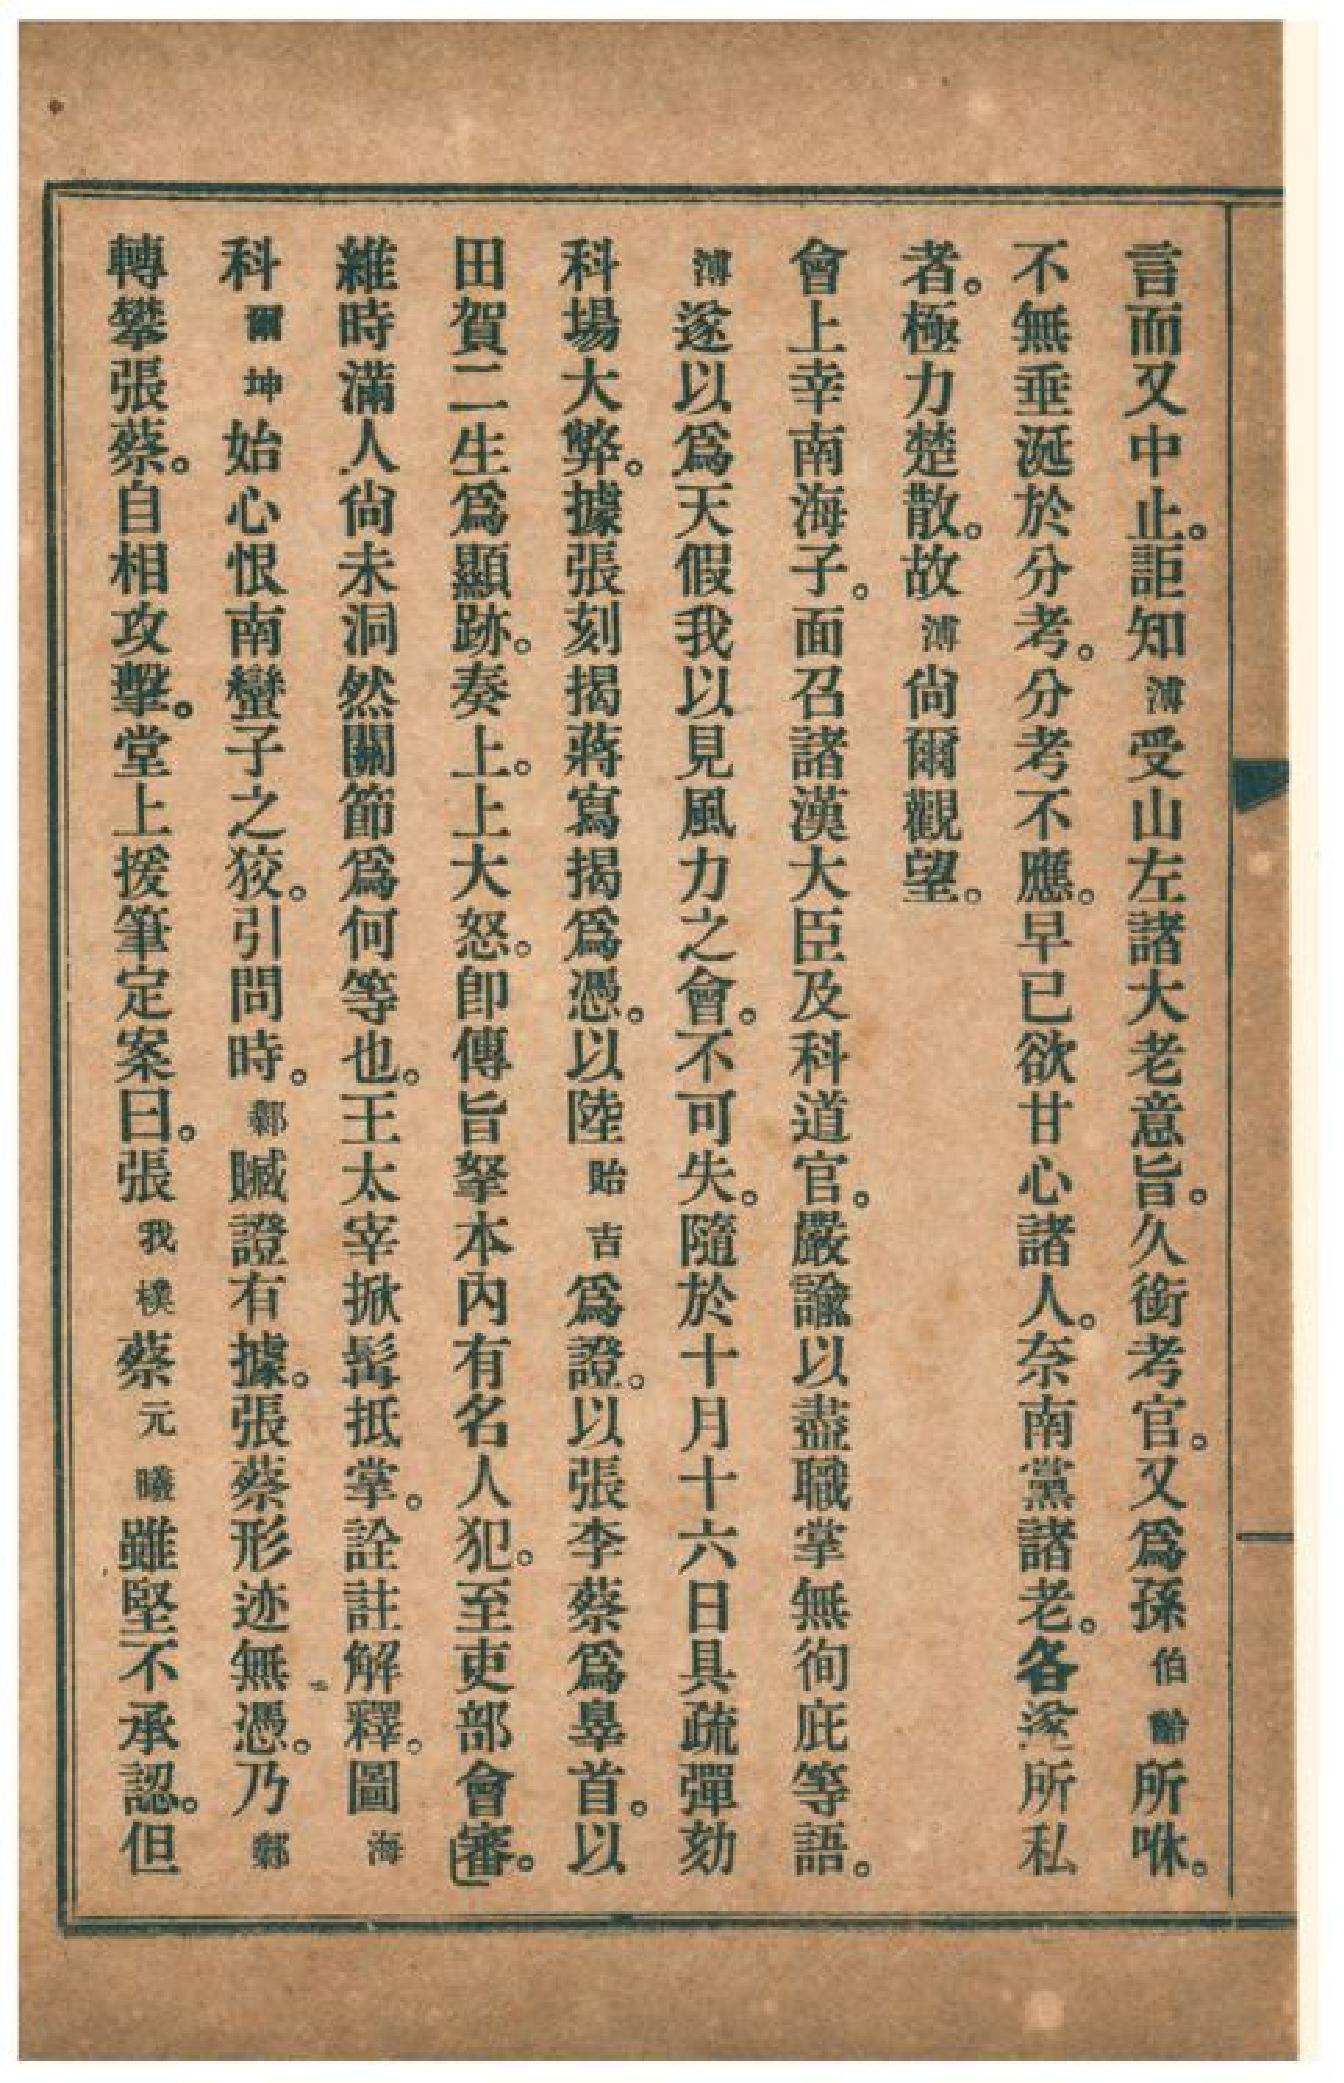 言而又中止。詎知溥受山左諸大老意旨。久銜考官。又爲孫伯齡所咻。
不無垂涎於分考。分考不應。早已欲甘心諸人。奈南黨諸老。各遂所私
者。極力楚散。故溥尙爾觀望。
會上幸南海子。面召諸漢大臣及科道官。嚴諭以盡職掌無徇庇等語。
溥遂以爲天假我以見風力之會。不可失。隨於十月十六日具疏彈劾
科場大弊。據張刻揭蔣寫揭爲憑。以陸貽吉爲證。以張李蔡爲辠首。以
田賀二生爲顯跡。奏上。上大怒。卽傳旨拏本內有名人犯。至吏部會審。
維時滿人尙未洞然關節爲何等也。王太宰掀髯抵掌。詮註解釋。圖海
科爾坤始心恨南蠻子之狡。引問時。鄴贓證有據。張蔡形迹無憑。乃鄴
轉攀張蔡。自相攻擊。堂上援筆定案曰。張我樸蔡元曦雖堅不承認。但